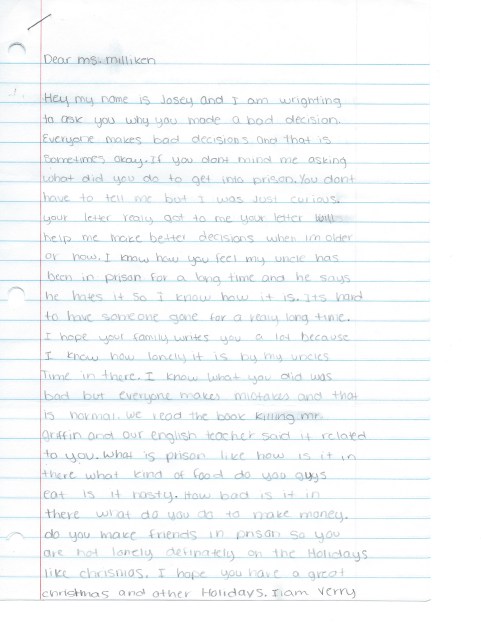 Dear ms. milliken
Hey my name is Josey and I am wrighting
to ask you why you made a bad decision.
Everyone makes bad decisions and that is
sometimes okay. If you dont mind me asking
what did you do to get into prison. You dont
have to tell me but I was just curious.
your letter realy got to me your letter will
help me make better decisions when im older
or now. I know how you feel my uncle has
been in prison for a long time and he says
he hates it so I know how it is. Its hard
to have someone gone for a realy long time.
I hope your family writes you a lot because
I know how lonely it is by my uncles
Time in there. I know what you did was
bad but everyone makes mistakes and that
is normal. we read the book killing mr.
griffin and our english teacher said it related
to you. what is prison like how is it in
there what kind of food do you guys
eat is it nasty. How bad is it in
there what do you do to make money.
do you make friends in prison so you
are not lonely definately on the Holidays
like chrismas. I hope you have a great
christmas and other Holidays. I iam verry